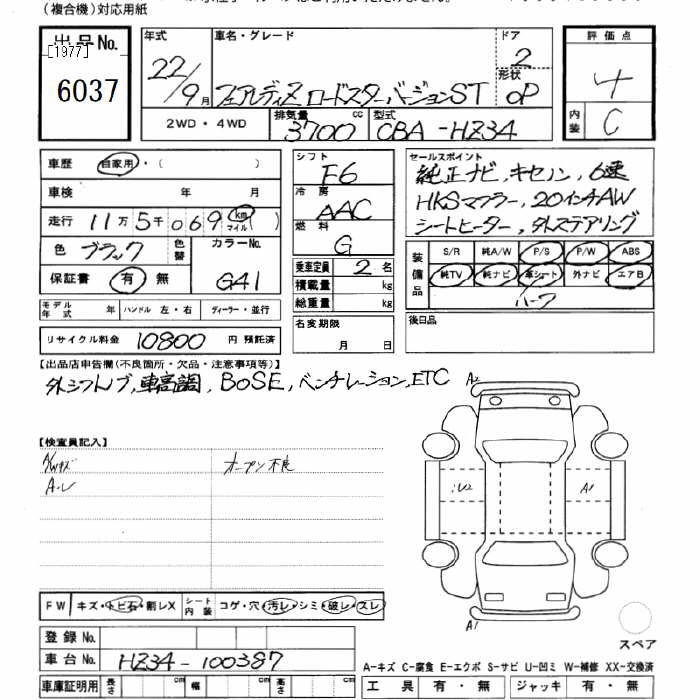 (複合機)対応用紙
出品No. 年式 車名・グレード ドア 評価点
[1977]
6037
22/9月 フェアレディZ ロードスターバージョンST 2 形状 OP 4
2WD・4WD 排気量 3700 cc 型式 CBA-HZ34 内装 C
車歴 自家用・( )
車検 年 月
走行 11万5千069 km マイル ( )
色 ブラック 色替 カラーNo.
保証書 有・無 G41
モデル年式 年 ハンドル 左・右 ディーラー・並行
リサイクル料金 10800 円 預託済
シフト F6
冷房 AAC
燃料 G
乗車定員 2 名
積載量 kg
総重量 kg
名変期限
月 日
セールスポイント
純正ナビ、キセノン、6速
HKSマフラー、20インチAW
シートヒーター、外ステアリング
装備品 S/R 純A/W P/S P/W ABS
純TV 純ナビ 革シート 外ナビ エアB
ハーフ
後日品
【出品店申告欄(不良箇所・欠品・注意事項等)】
外シフトノブ、車高調、BOSE、ベンチレーション、ETC
【検査員記入】
A/Wキズ オープン不良
A・U
A2
U2 A1
A1
スペア
FW キズ・トビ石・割レX シート内装 コゲ・穴・汚レ・シミ・破レ・スレ
登録No.
車台No. HZ34-100387
車庫証明用 長さ cm 幅 cm 高さ cm
A-キズ C-腐食 E-エクボ S-サビ U-凹ミ W-補修 XX-交換済
工具 有・無 ジャッキ 有・無